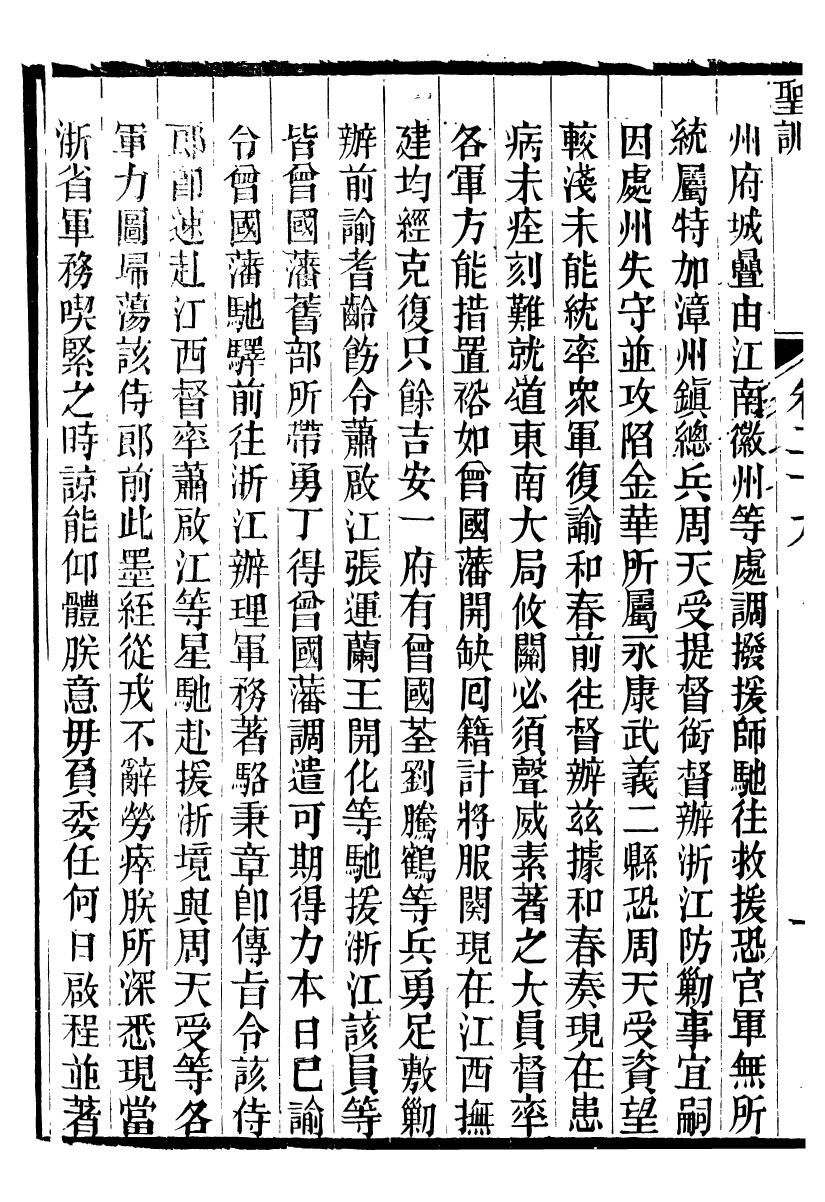 聖訓
州府城疊由江南徽州等處調撥援師馳往救援恐官軍無所
統屬特加漳州鎮總兵周天受提督銜督辦浙江防勦事宜嗣
因處州失守並攻陷金華所屬永康武義二縣恐周天受資望
較淺未能統率眾軍復諭和春前往督辦茲據和春奏現在患
病未痊刻難就道東南大局攸關必須聲威素著之大員督率
各軍方能措置裕如曾國藩開缺回籍計將服闋現在江西撫
建均經克復只餘吉安一府有曾國荃劉騰鶴等兵勇足敷勦
辦前諭耆齡飭令蕭啟江張運蘭王開化等馳援浙江該員等
皆曾國藩舊部所帶勇丁得曾國藩調遣可期得力本日已諭
令曾國藩馳驛前往浙江辦理軍務著駱秉章卽傳旨令該侍
郎卽速赴江西督率蕭啟江等星馳赴援浙境與周天受等各
軍力圖埽蕩該侍郎前此墨絰從戎不辭勞瘁朕所深悉現當
浙省軍務喫緊之時諒能仰體朕意毋負委任何日啟程並著